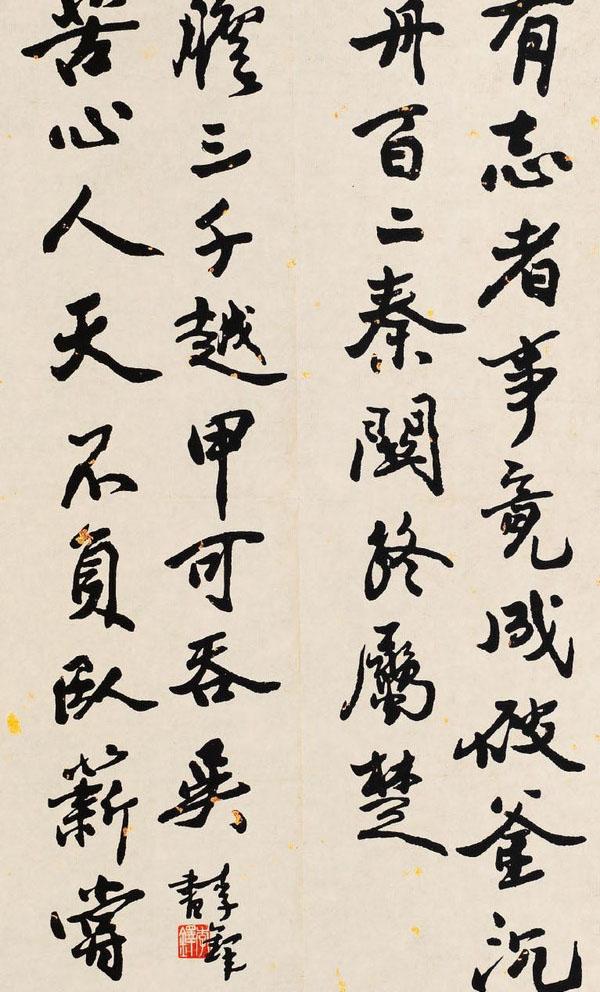 有志者事竟成破釜沉
舟百二秦關終屬楚
苦心人天不負臥薪嘗
膽三千越甲可吞吳
李鐸
書
李鐸